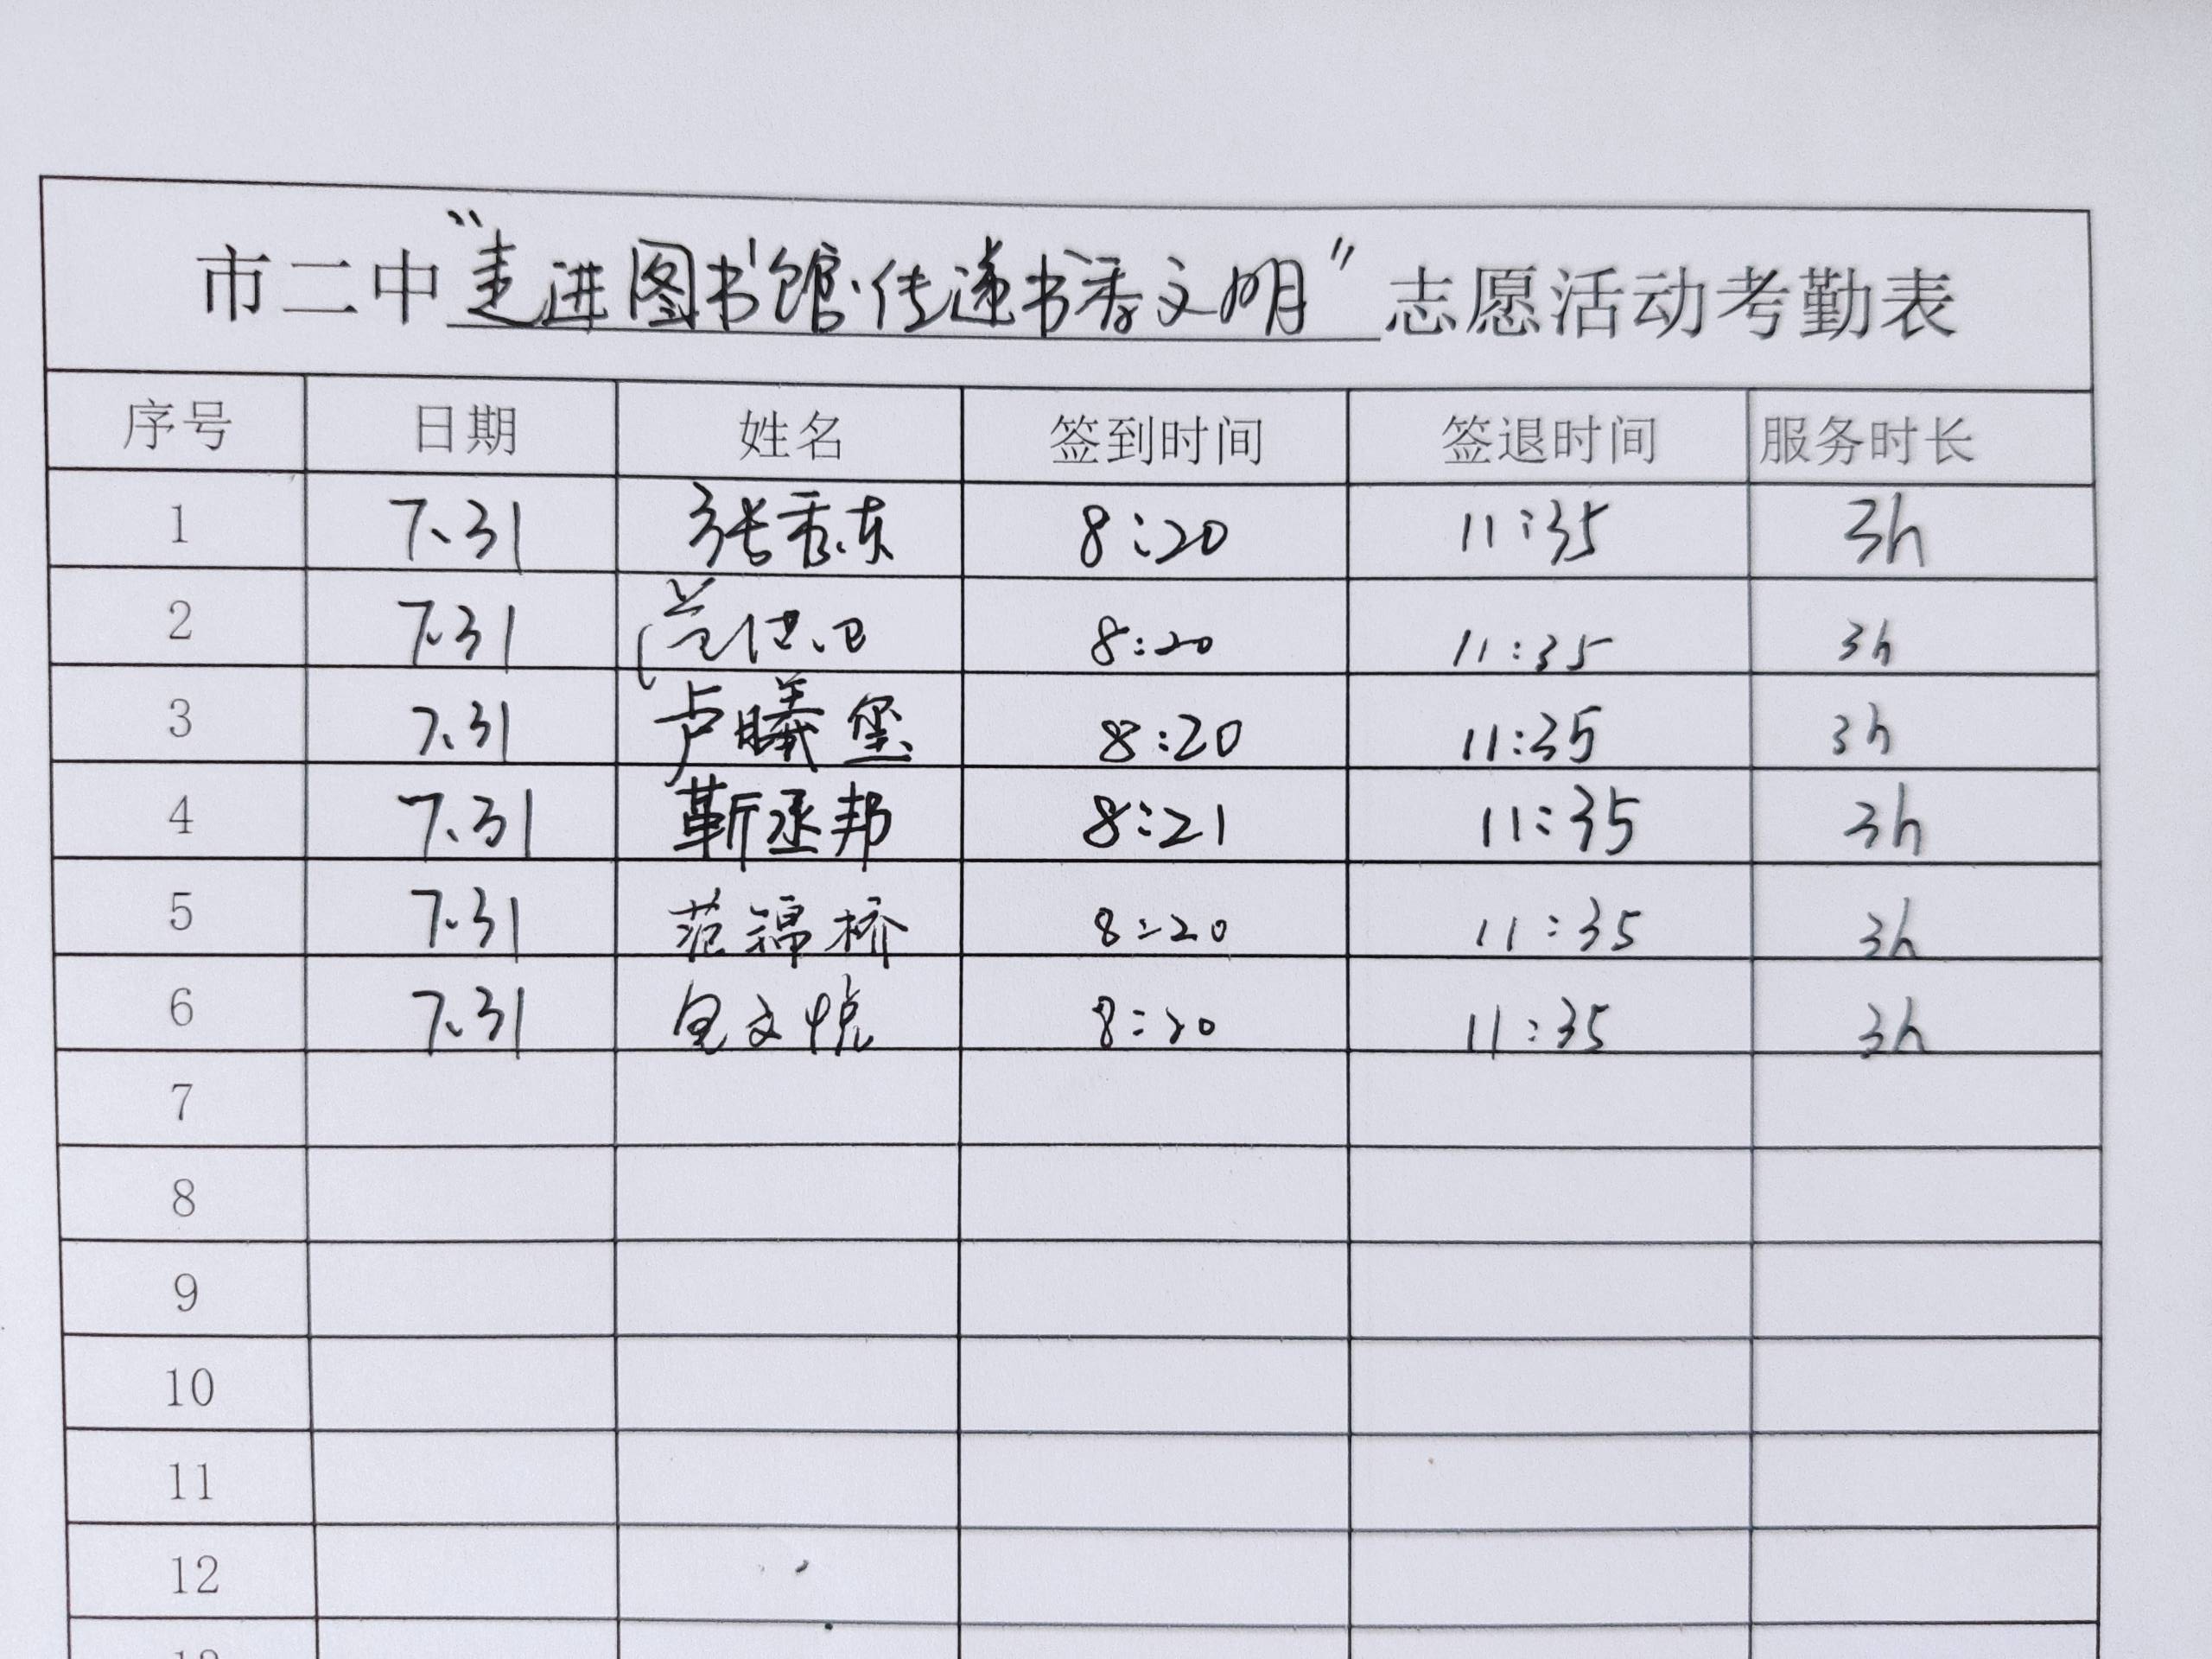 市二中“走进图书馆·传递书香文明”志愿活动考勤表
序号 日期 姓名 签到时间 签退时间 服务时长
1 7.31 张秀东 8:20 11:35 3h
2 7.31 8:20 11:35 3h
3 7.31 卢曦玺 8:20 11:35 3h
4 7.31 靳丞邦 8:21 11:35 3h
5 7.31 范锦桥 8:20 11:35 3h
6 7.31 包文悦 8:20 11:35 3h
7
8
9
10
11
12